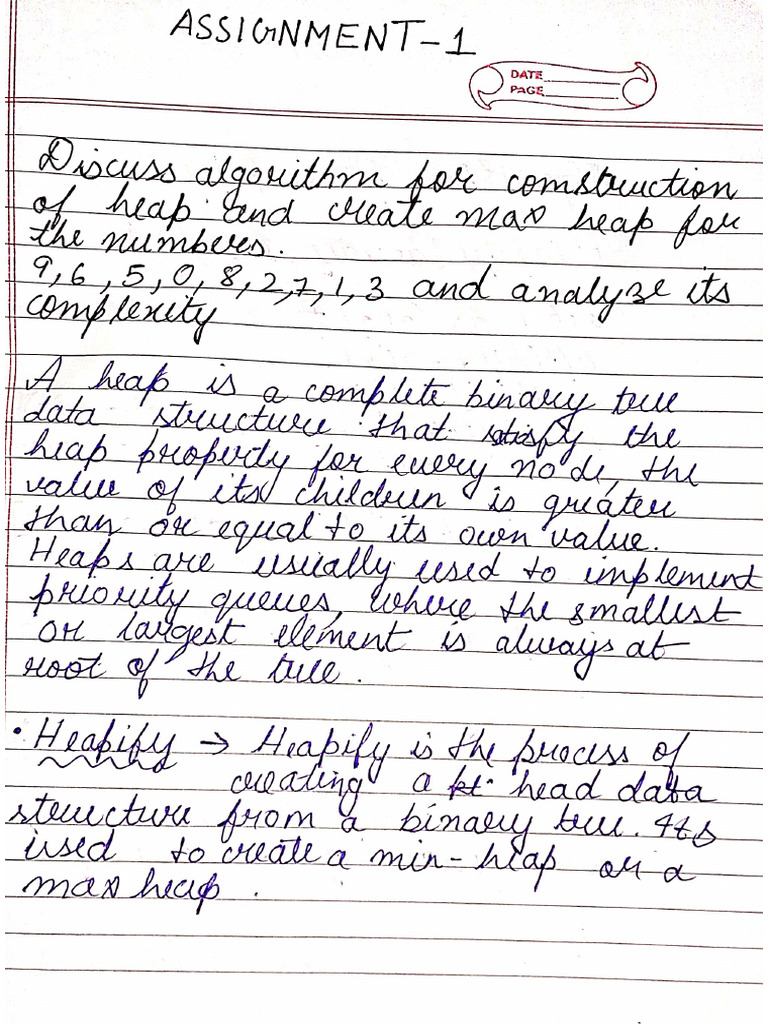 ASSIGNMENT-1
DATE
PAGE
Discuss algorithm for comstruction
of heap and create max heap for
the numbers.
9,6,5,0,8,2,7,1,3 and analyze its
complexity
A heap is a complete binary tree
data structure that satisfy the
heap property for every node, the
value of its children is greater
than or equal to its own value.
Heaps are usually used to implement
priority queues, where the smallest
or largest element is always at
root of the tree.
• Heapify → Heapify is the process of
creating a head data
structure from a binary tree. It is
used to create a min-heap or a
max heap.